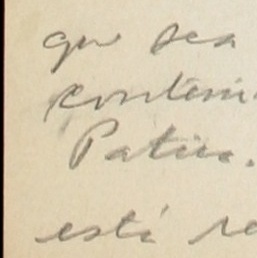 que sea
contem
Patria.
está re